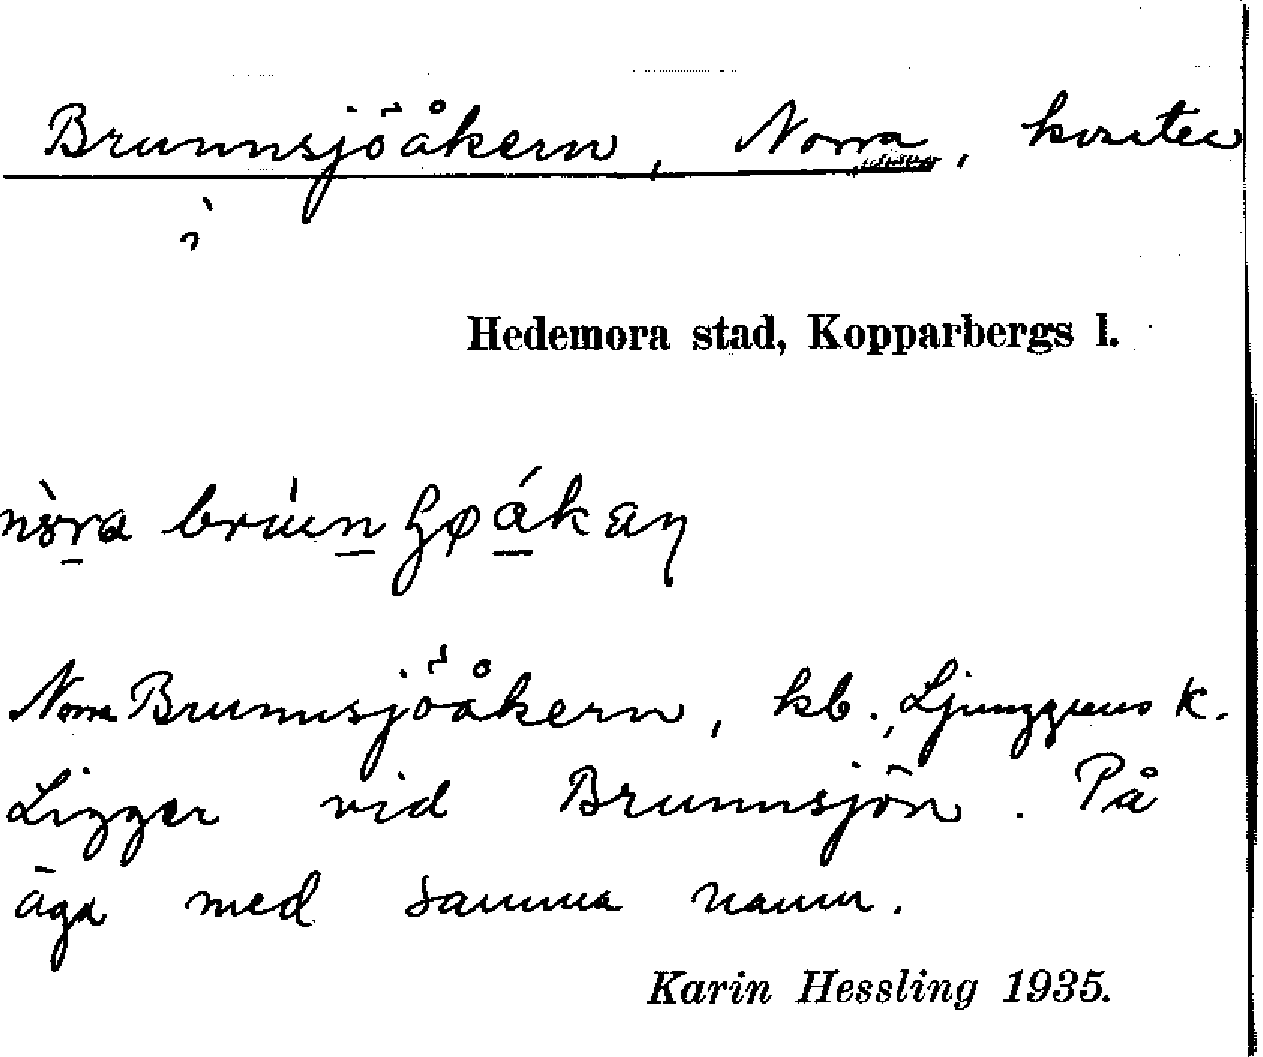 Brunnsjöåkern, Norra, kvarter
i
Hedemora stad, Kopparbergs l.
Norra Brunnsjöåkern, kb., Ljunggrens K.
Ligger vid Brunnsjön. På
äga med samma namn.
Karin Hessling 1935.